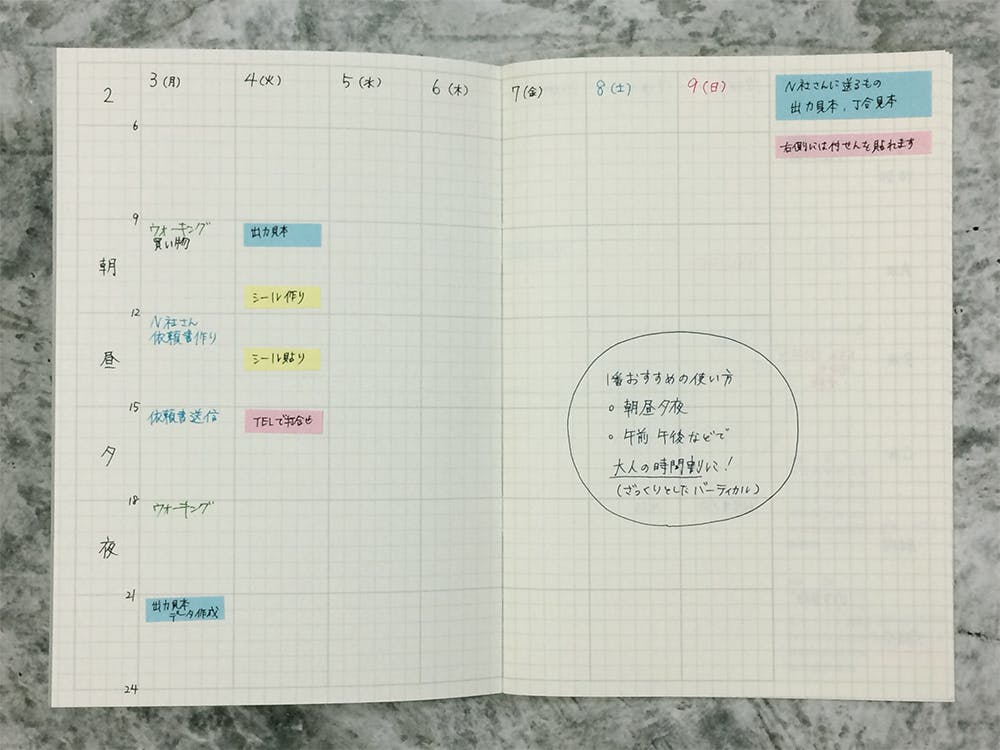 2
3(月)
4(火)
5(水)
6(木)
7(金)
8(土)
9(日)
N社さんに送るもの
出力見本, 丁合見本
右側には付せんを貼れます
6
9
朝
12
昼
15
夕
18
夜
21
24
ウォーキング
買い物
N社さん
依頼書作り
依頼書送信
ウォーキング
出力見本
データ作成
出力見本
シール作り
シール貼り
TELで打合せ
1番おすすめの使い方
○ 朝昼夕夜
○ 午前 午後などで
大人の時間割に!
(ざっくりとしたバーティカル)